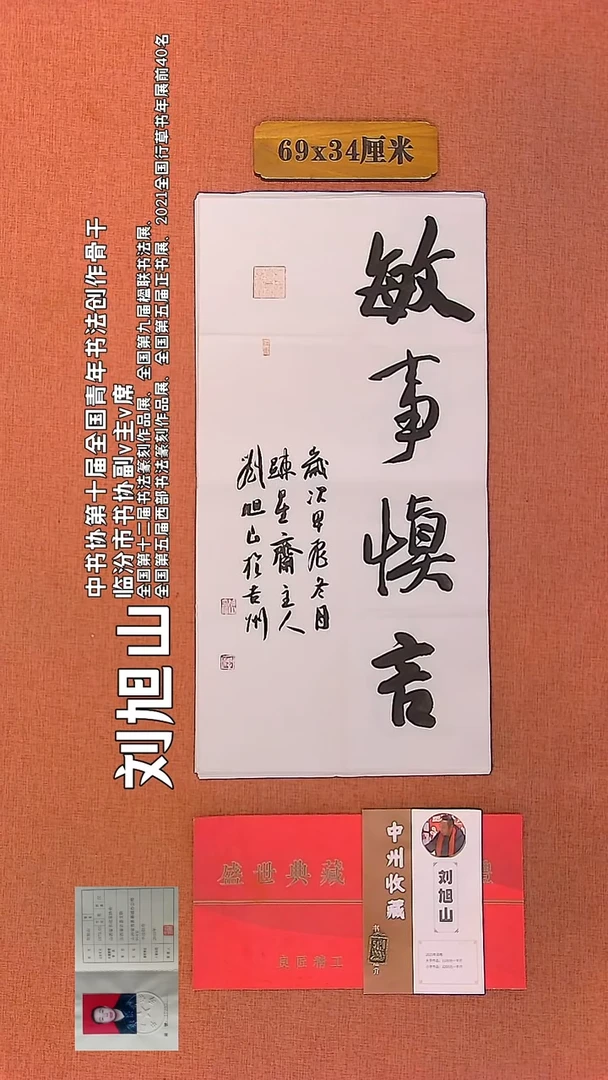 69x34厘米
敏事慎言
歲次甲辰冬月
踈星齋主人
劉旭山於吉州
刘旭山
中书协第十届全国青年书法创作骨干
临汾市书协副v主v席
全国第十二届书法篆刻作品展、全国第九届楹联书法展、
全国第五届西部书法篆刻作品展、全国第五届正书展、2021全国行草书年展前40名
盛世典藏
良匠精工
中州收藏
刘旭山